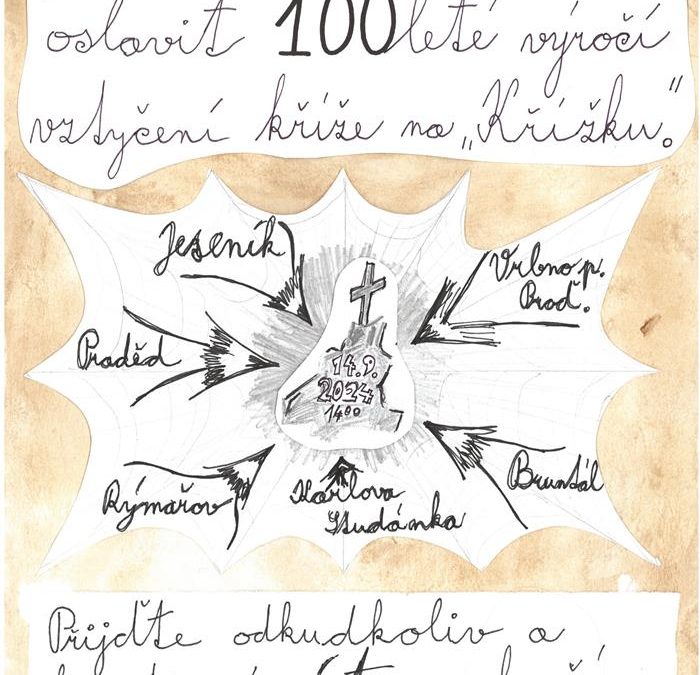 oslavit 100leté výročí
vztyčení kříže na „Křížku.“
Jeseník
Vrbno p.
Prad.
Praděd
14.9.
2024
14⁰⁰
Rýmařov
Karlova
Studánka
Bruntál
Přijďte odkudkoliv a